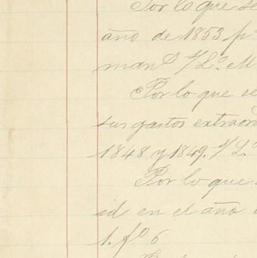 Por lo que se
año de 1853 p
man S/L. M
Por lo que se
sus gastos extraor
1848 y 1849. S/L.
Por lo que
id en el año
1. fo 6